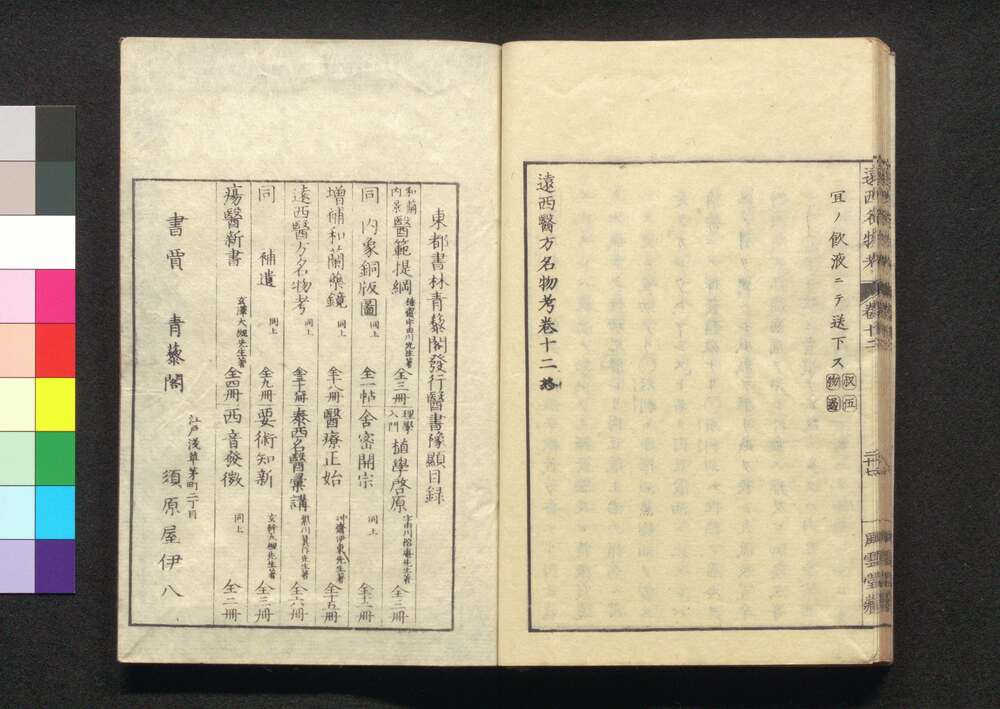 遠西名物考 卷十二 三十七 風雲堂藏
冝ノ飲液ニテ送下ス
遠西醫方名物考卷十二終
東都書林青藜閣發行醫書豫顯目録
和蘭内景醫範提綱 榛齋宇田川先生著 全三冊
理學入門植學啓原 宇田川榕菴先生著 全三冊
同 内象銅版圖 同上 全一帖
舍密開宗 同上
増補和蘭藥鏡 同上 全十八冊
醫療正始 冲齋伊東先生著 全十五冊
遠西醫方名物考 同上
泰西名醫彙講 箕作先生著 全六冊
同 補遺 同上 全九冊
要術知新 玄幹大槻先生著 全三冊
瘍醫新書 玄澤大槻先生著 全四冊
西音發微 同上 全二冊
書賈 青藜閣
江戸淺草茅町二丁目
須原屋伊八